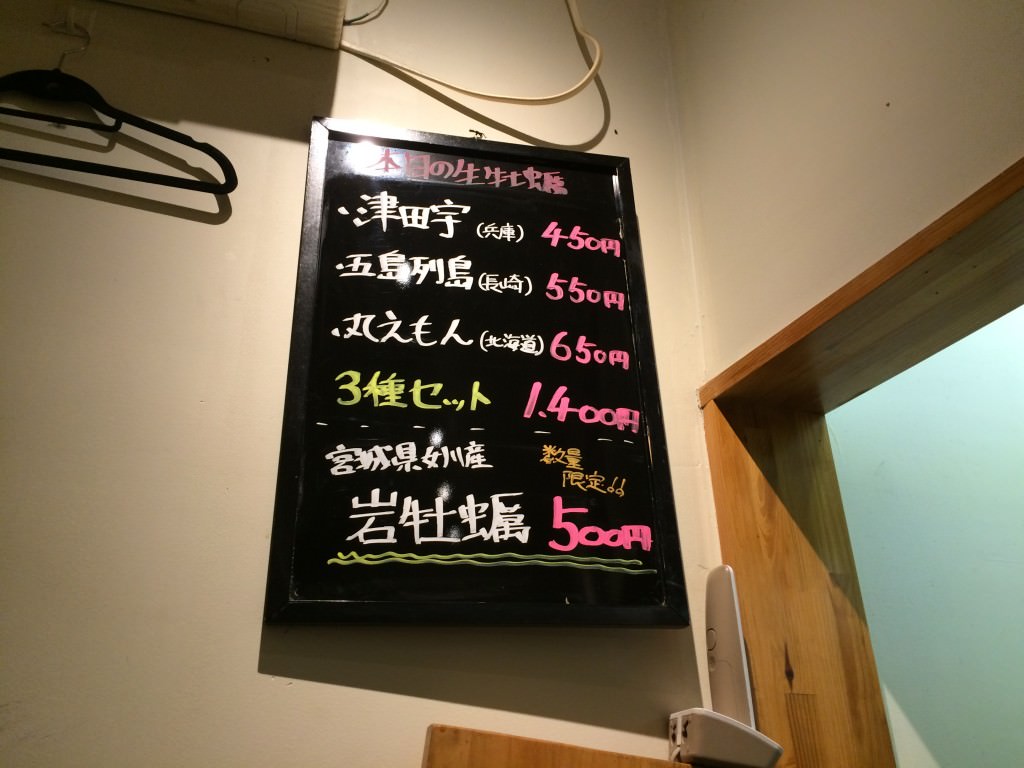 本日の生牡蠣
・津田宇(兵庫) 450円
・五島列島(長崎) 550円
・丸えもん(北海道) 650円
3種セット 1.400円
宮城県女川産 数量限定!!
岩牡蠣 500円